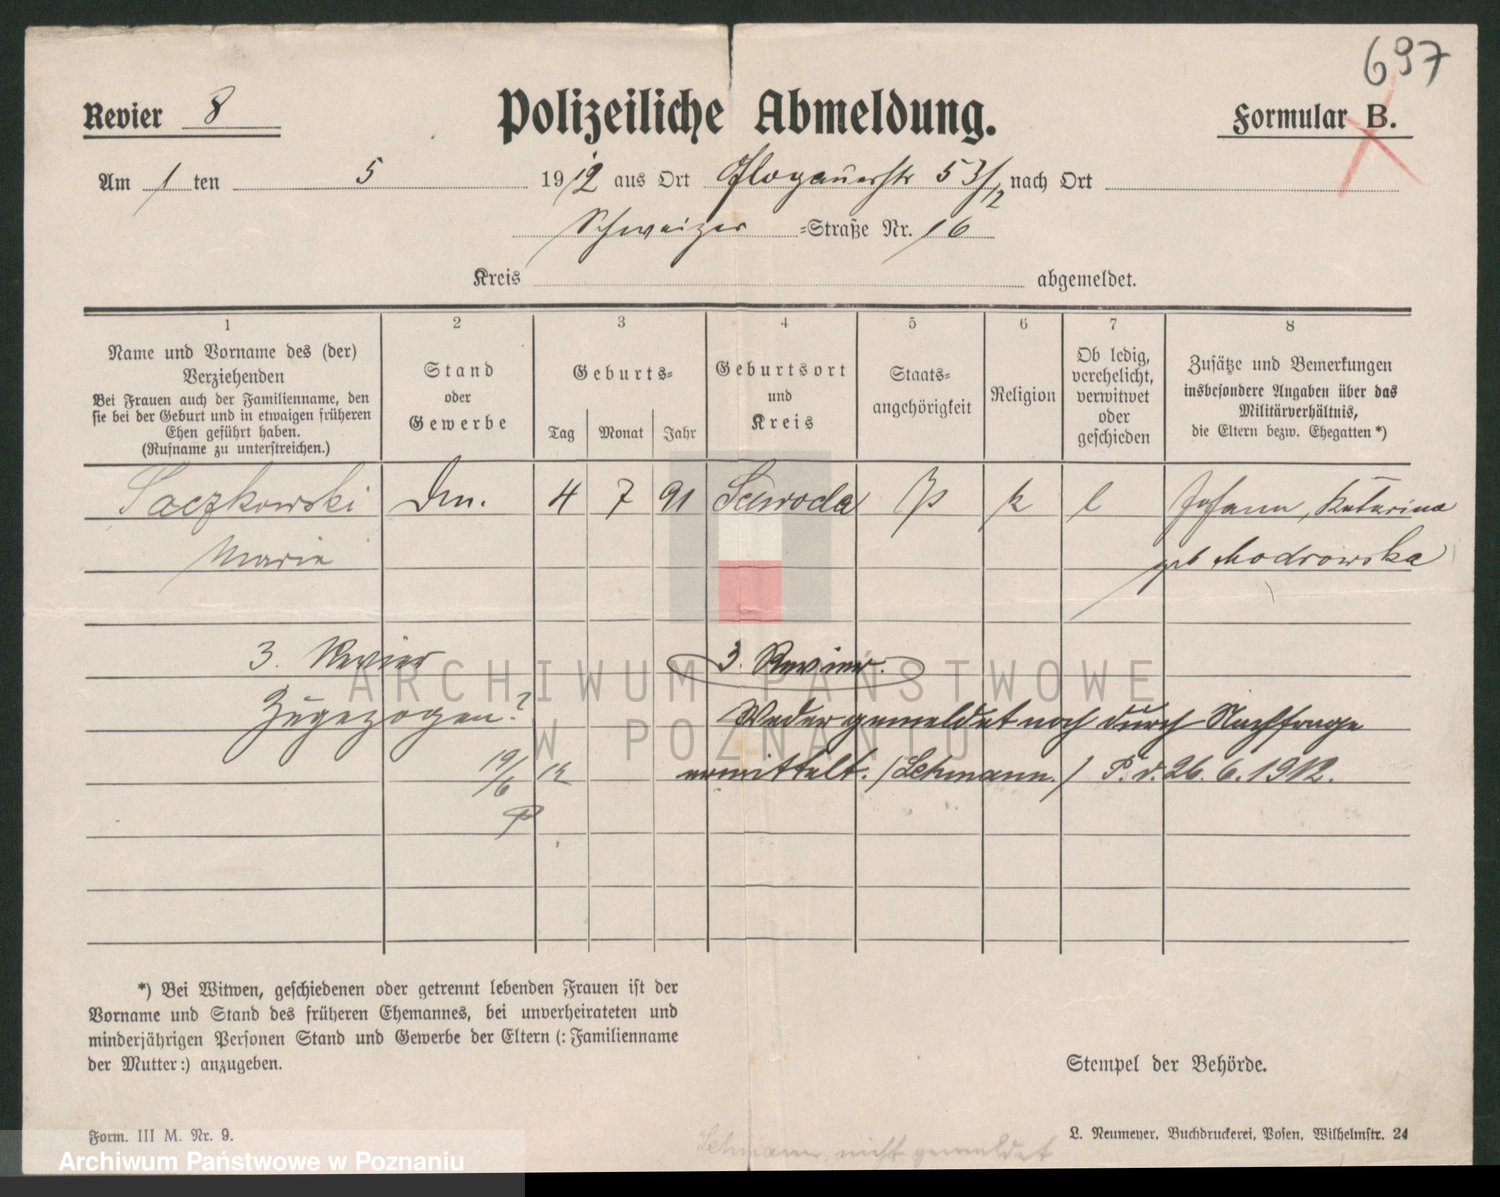 697
Revier 8 Polizeiliche Abmeldung. Formular B.
Am 1 ten 5 1912 aus Ort Glogauerstr 53/12 nach Ort
Schweizer =Straße Nr. 16
Kreis abgemeldet.
1 2 3 4 5 6 7 8
Name und Vorname des (der)
Verziehenden
Bei Frauen auch der Familienname, den
sie bei der Geburt und in etwaigen früheren
Ehen geführt haben.
(Rufname zu unterstreichen.)
Stand
oder
Gewerbe
Geburts=
Tag Monat Jahr
Geburtsort
und
Kreis
Staats=
angehörigkeit
Religion
Ob ledig,
verehelicht,
verwitwet
oder
geschieden
Zusätze und Bemerkungen
insbesondere Angaben über das
Militärverhältnis,
die Eltern bezw. Ehegatten *)
Saczkowski Dm. 4 7 91 P k l Johann, Katarina
Marie geb Modrowska
3. Revier 3. Revier.
Zugezogen? Weder gemeldet noch durch Nachfrage
19/6 12 ermittelt. /Lehmann./ P. d. 26. 6. 1912.
P
ARCHIWUM PAŃSTWOWE
W POZNANIU
*) Bei Witwen, geschiedenen oder getrennt lebenden Frauen ist der
Vorname und Stand des früheren Ehemannes, bei unverheirateten und
minderjährigen Personen Stand und Gewerbe der Eltern (: Familienname
der Mutter:) anzugeben.
Stempel der Behörde.
Form. III M. Nr. 9. L. Neumeyer, Buchdruckerei, Posen, Wilhelmstr. 24
Lehmann, nicht gemeldet
Archiwum Państwowe w Poznaniu